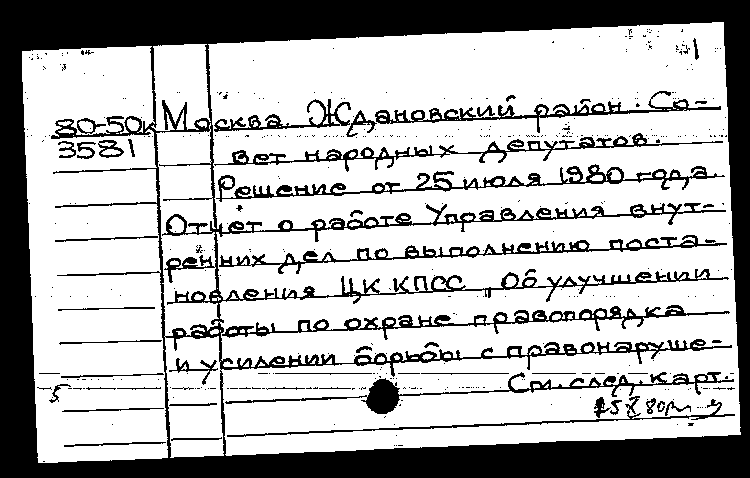 1
80-50к Москва. Ждановский район. Со-
3581 вет народных депутатов.
Решение от 25 июля 1980 года.
Отчет о работе Управления внут-
ренних дел по выполнению поста-
новления ЦК КПСС „Об улучшении
работы по охране правопорядка
и усилении борьбы с правонаруше-
См. след. карт.
5